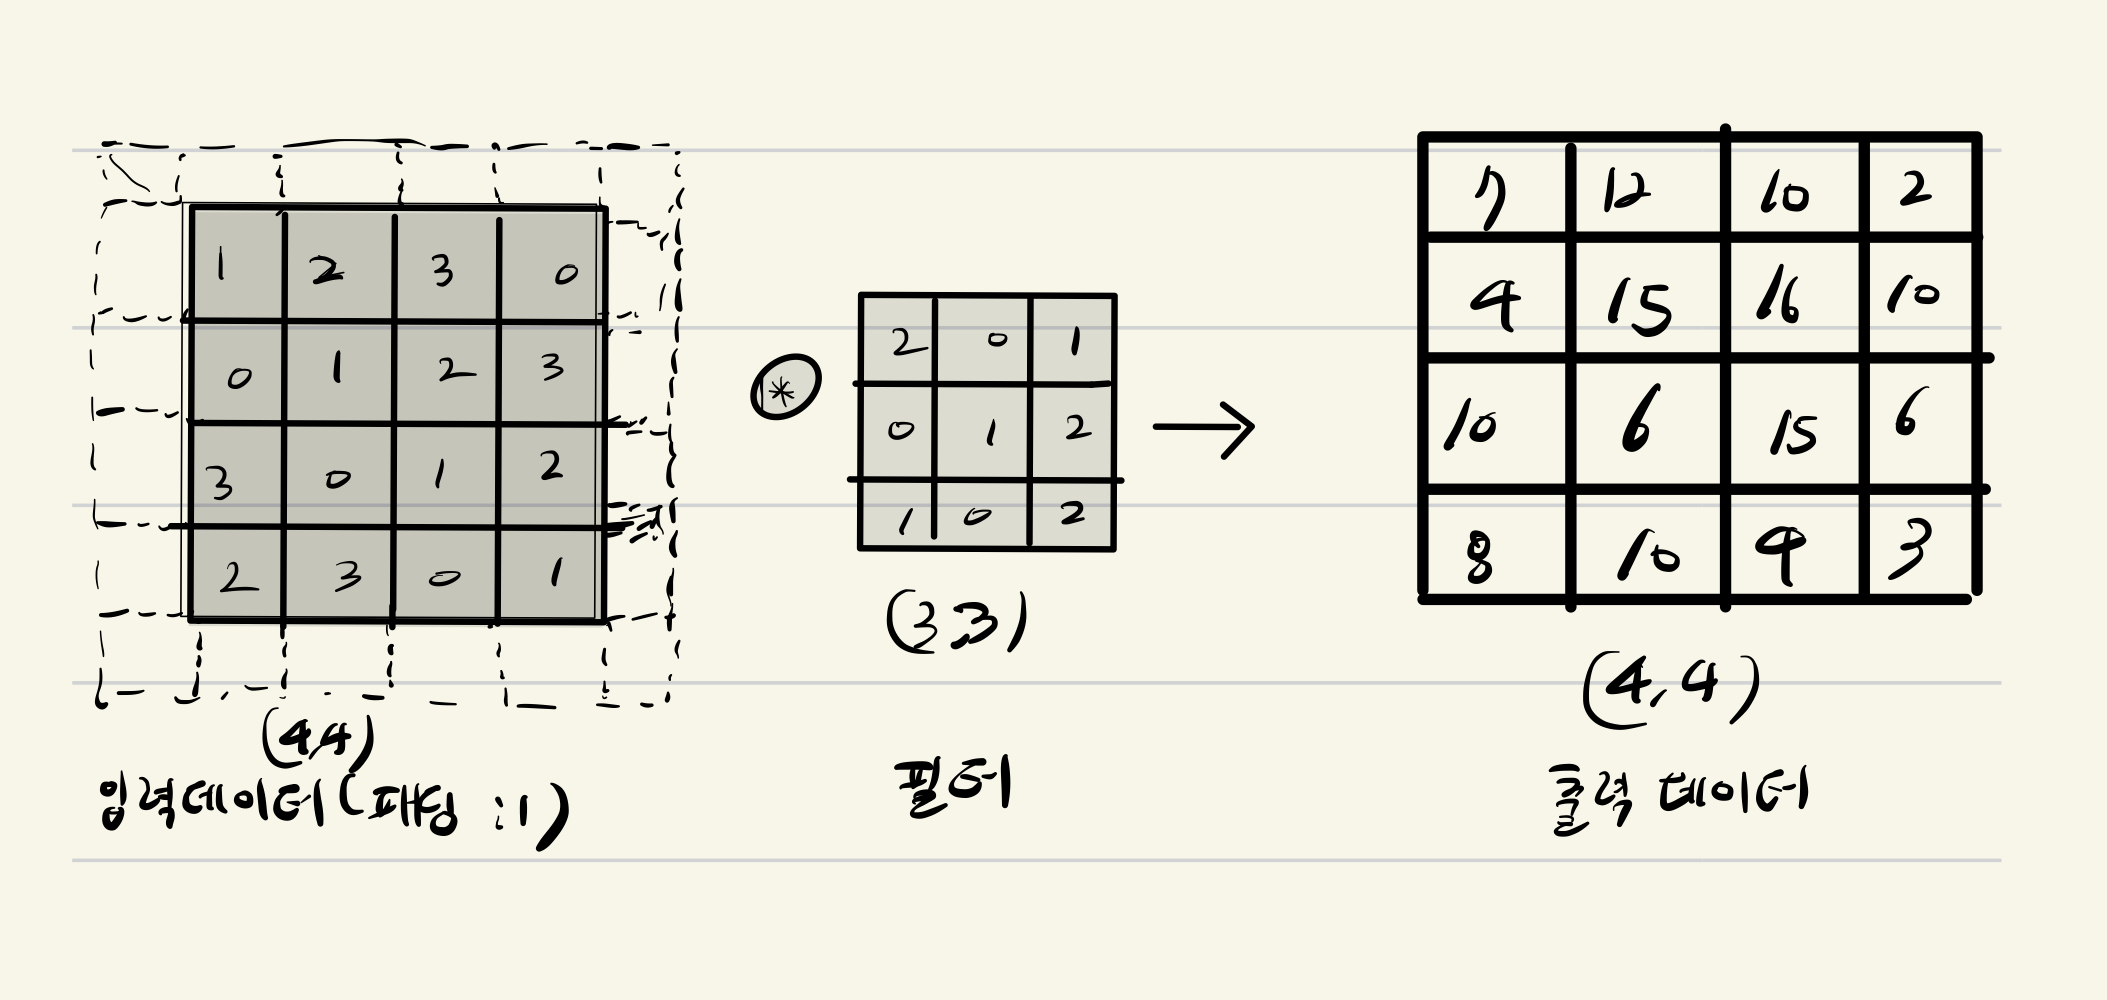 1 2 3 0
0 1 2 3
3 0 1 2
2 3 0 1
(4,4)
입력데이터(패딩 : 1)
*
2 0 1
0 1 2
1 0 2
(3,3)
필터
7 12 10 2
4 15 16 10
10 6 15 6
8 10 4 3
(4,4)
출력 데이터